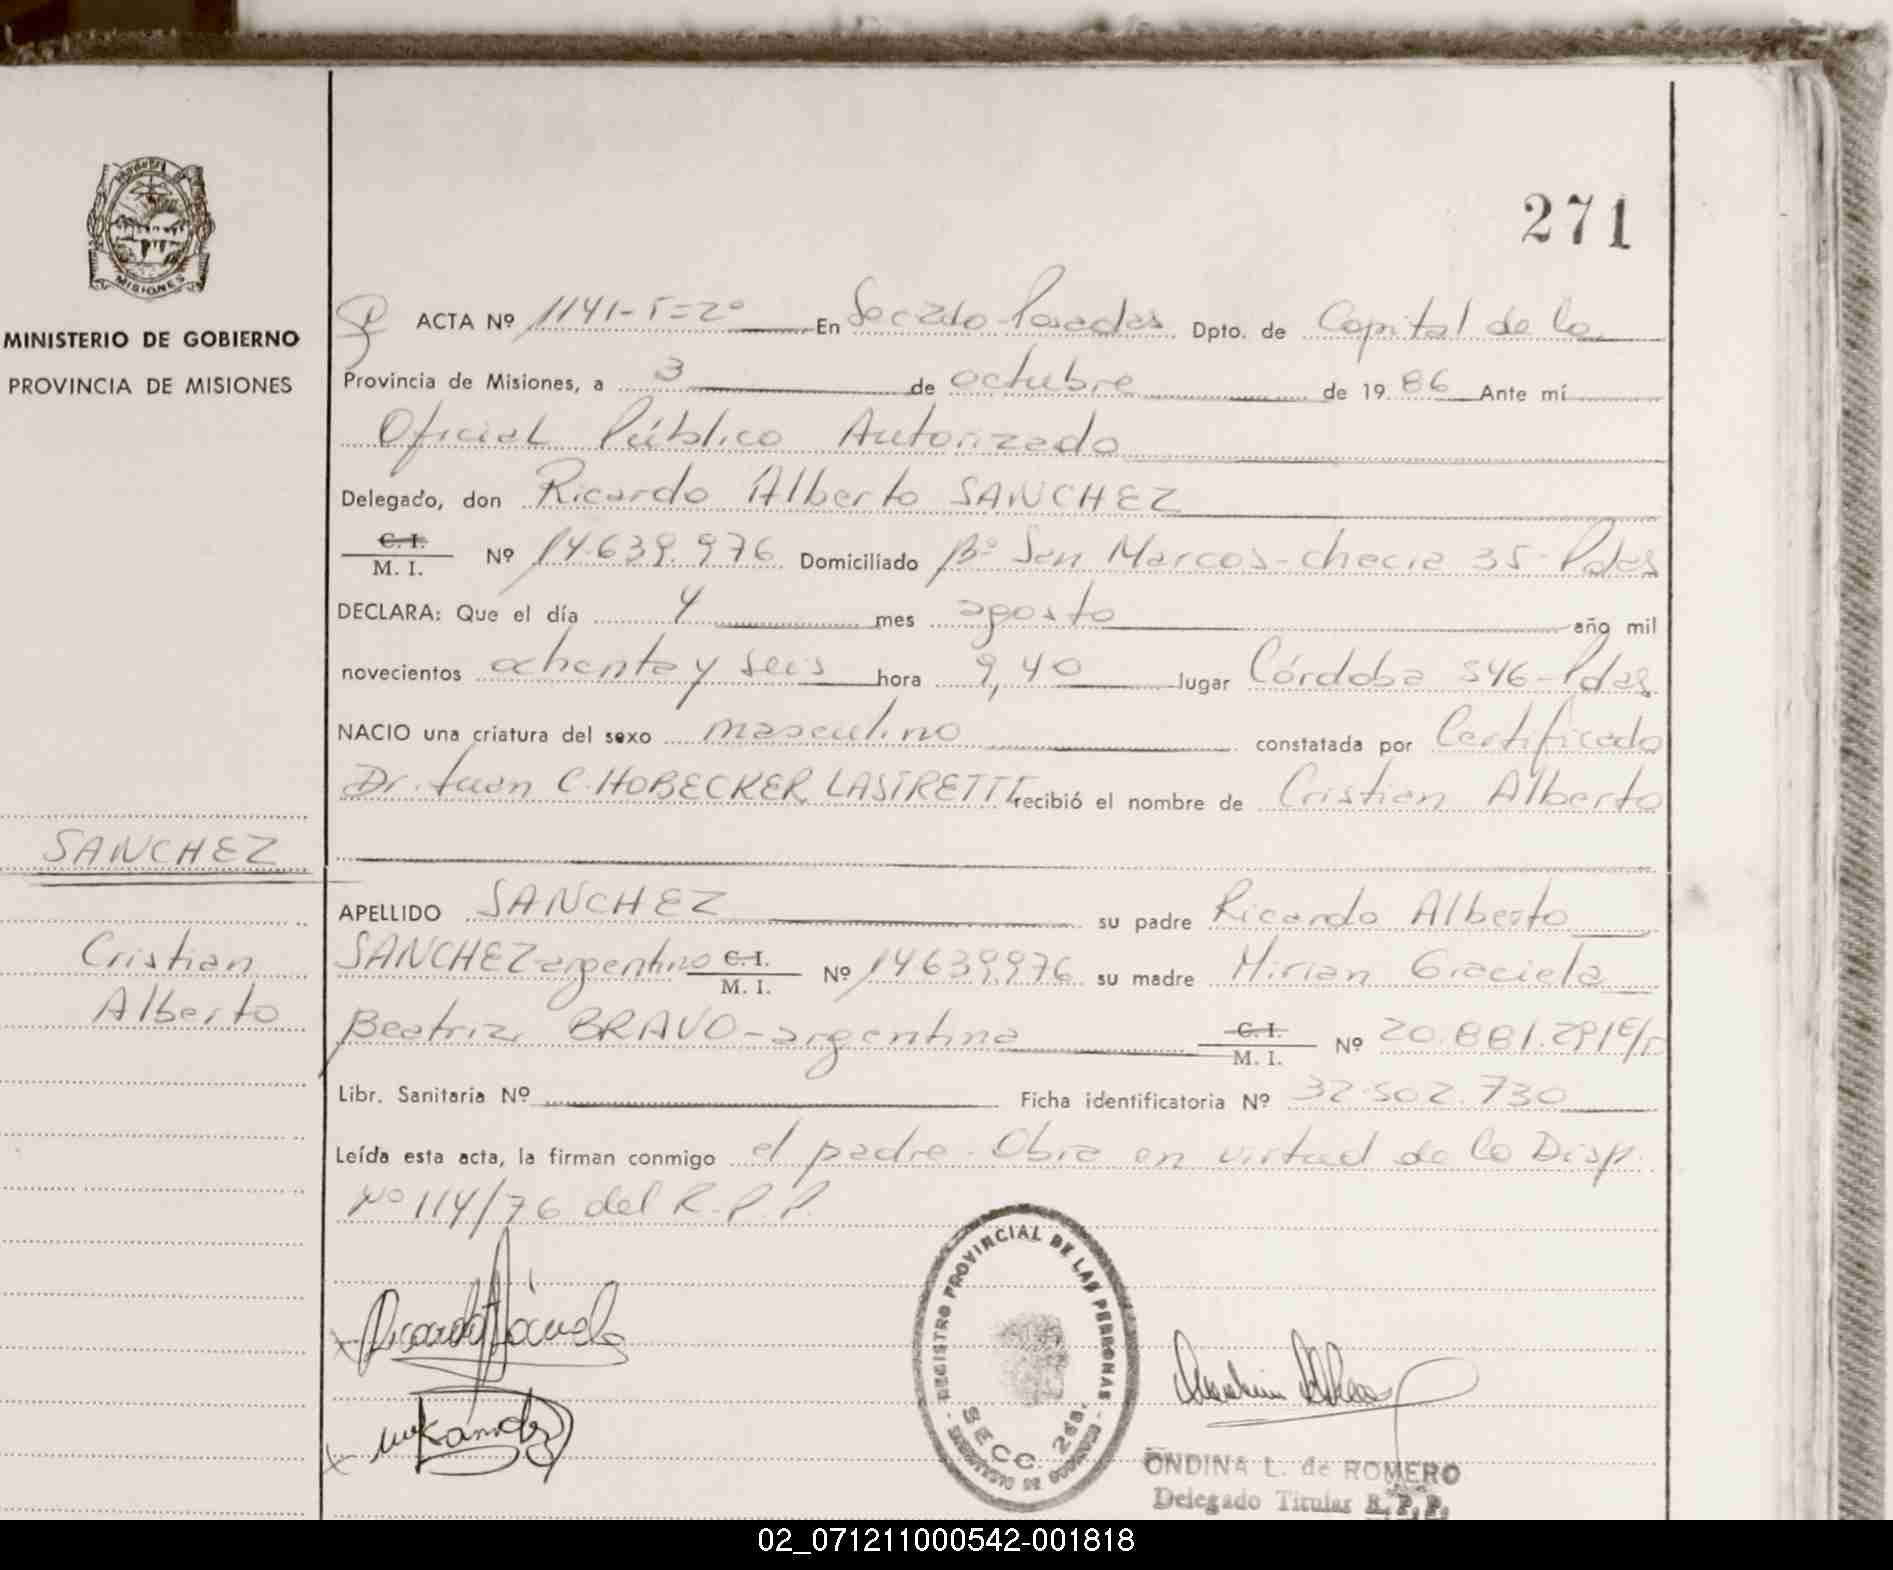 271
MISIONES
MINISTERIO DE GOBIERNO
PROVINCIA DE MISIONES
ACTA Nº 1141-T=2º En Sec 2da Posadas Dpto. de Capital de la
Provincia de Misiones, a 3 de octubre de 1986 Ante mí
Oficial Público Autorizado
Delegado, don Ricardo Alberto SANCHEZ
C. I.
M. I. Nº 14.639.976 Domiciliado Bº San Marcos-chacra 35-Pdas
DECLARA: Que el día 4 mes agosto año mil
novecientos ochenta y seis hora 9,40 lugar Córdoba 546-Pdas
NACIO una criatura del sexo masculino constatada por Certificado
Dr. Juan C. HOBECKER LASTRETTI recibió el nombre de Cristian Alberto
SANCHEZ
Cristian
Alberto
APELLIDO SANCHEZ su padre Ricardo Alberto
SANCHEZ-argentino C. I.
M. I. Nº 14639976 su madre Mirian Graciela
Beatriz BRAVO-argentina C. I.
M. I. Nº 20.881.291
Libr. Sanitaria Nº Ficha identificatoria Nº 32.502.730
Leída esta acta, la firman conmigo el padre. Obra en virtud de la Disp.
Nº 114/76 del R.P.P.
REGISTRO PROVINCIAL DE LAS PERSONAS
SECC. 2da.
ONDINA L. de ROMERO
Delegado Titular R.P.P.
02_071211000542-001818